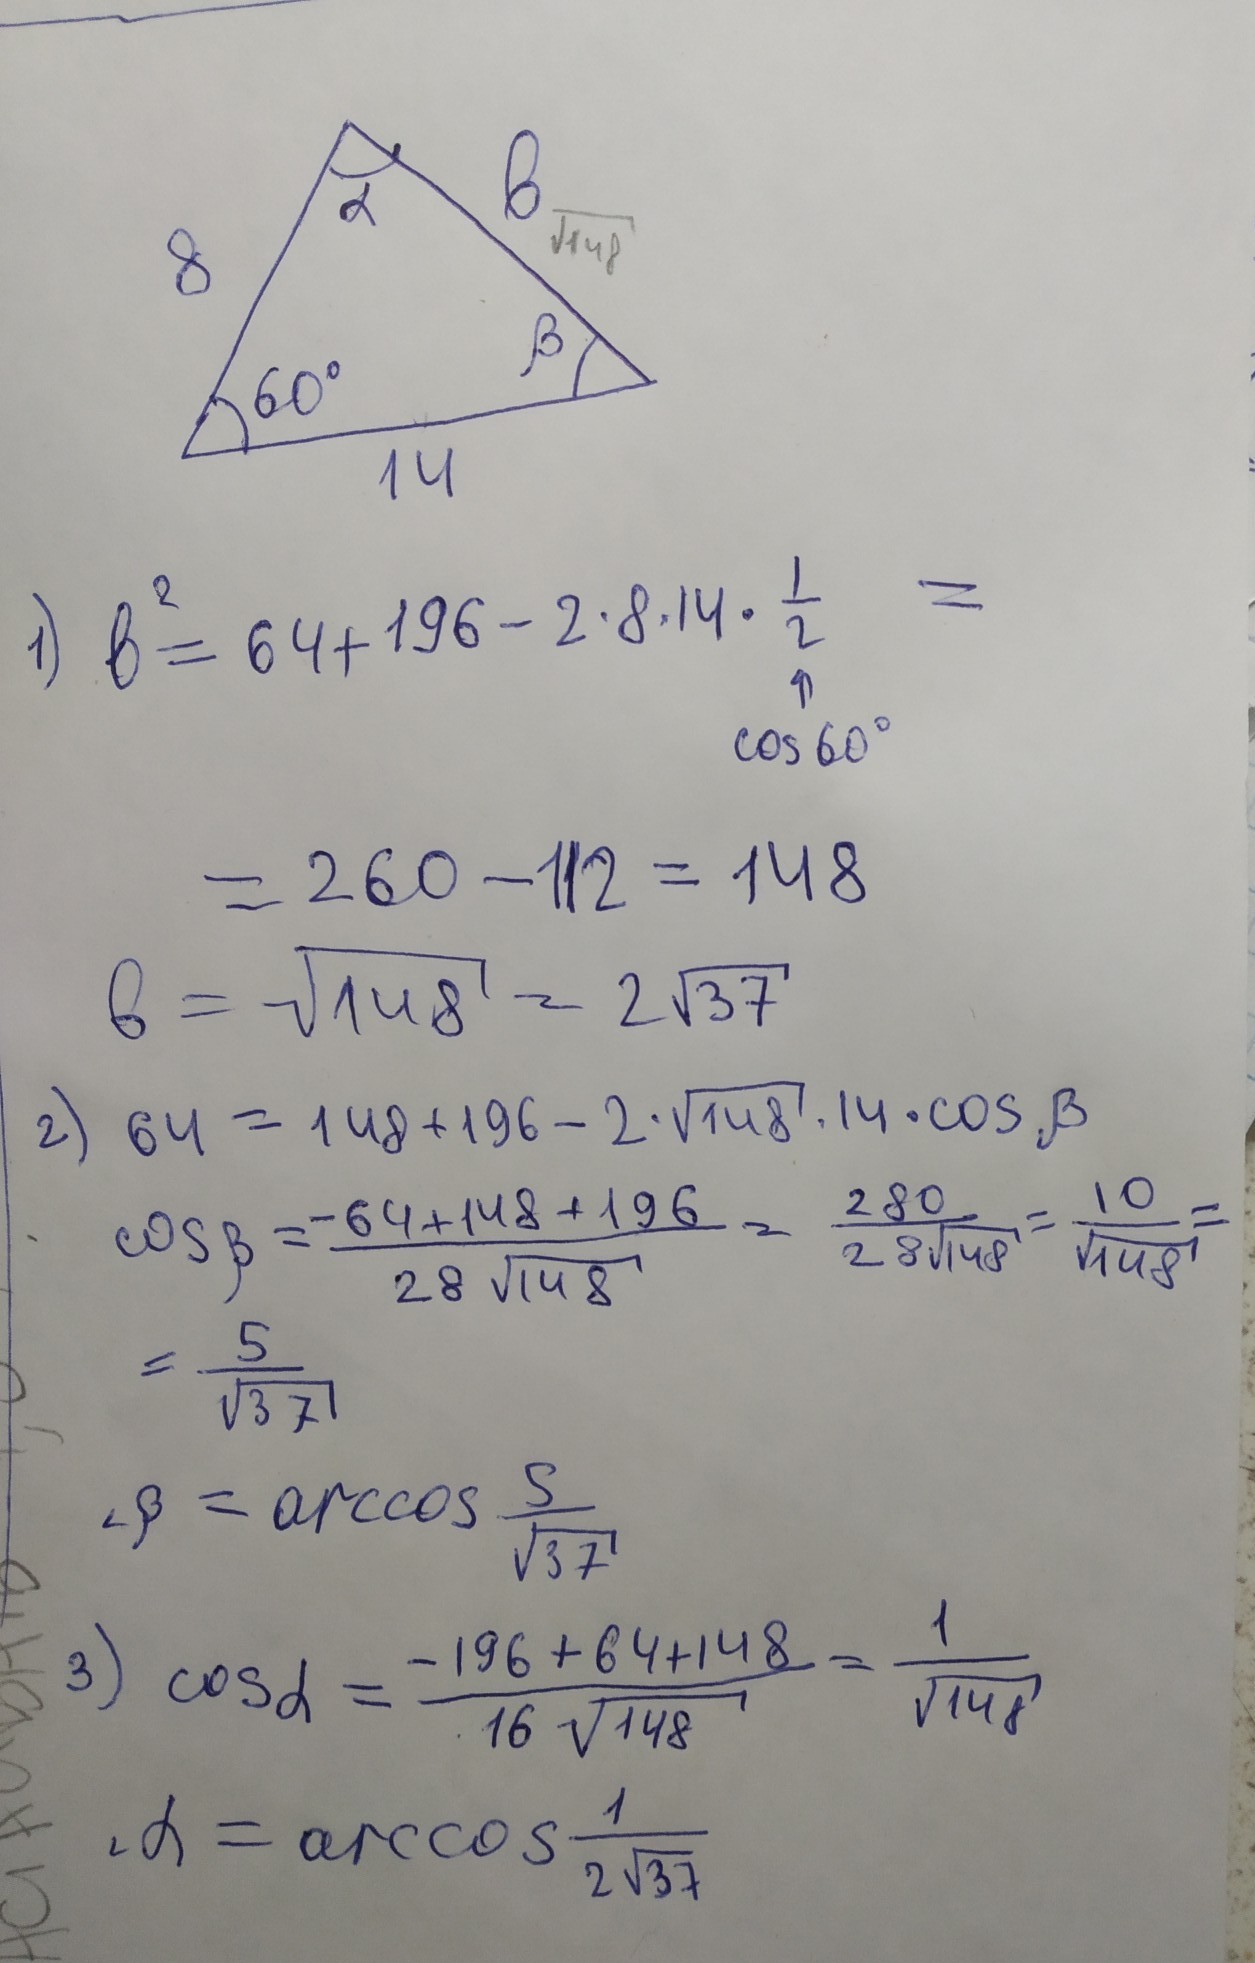 8
α
b
√148
60°
β
14
1) b² = 64 + 196 - 2 · 8 · 14 · 1/2 =
↑
cos 60°
= 260 - 112 = 148
b = √148 = 2√37
2) 64 = 148 + 196 - 2 · √148 · 14 · cos β
cos β = (-64 + 148 + 196)/(28√148) = 280/(28√148) = 10/√148 =
= 5/√37
∠β = arccos 5/√37
3) cos α = (-196 + 64 + 148)/(16√148) = 1/√148
∠α = arccos 1/(2√37)